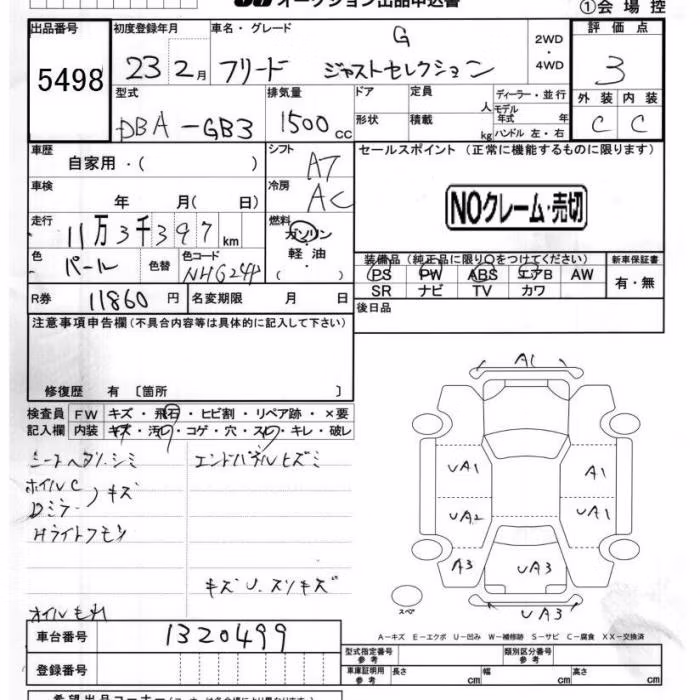 オークション出品申込書
①会場控
出品番号 初度登録年月 車名・グレード G 2WD・4WD 評価点
5498 23 2月 フリード ジャストセレクション 3
型式 排気量 ドア 定員 人 ディーラー・並行 外装 内装
DBA-GB3 1500cc 形状 積載 kg モデル年式 年 ハンドル 左・右 C C
車歴 自家用・( ) シフト AT セールスポイント (正常に機能するものに限ります)
車検 年 月( 日) 冷房 AC
NOクレーム・売切
走行 11万3千397km 燃料 ガソリン・軽油・( )
色 パール 色替 色コード NH624P 装備品 (純正品に限り○をつけてください) 新車保証書
PS PW ABS エアB AW 有・無
SR ナビ TV カワ
R券 11860円 名変期限 月 日 後日品
注意事項申告欄(不具合内容等は具体的に記入して下さい)
修復歴 有 〔箇所 〕
検査員 FW キズ・飛石・ヒビ割・リペア跡・×要
記入欄 内装 キズ・汚れ・コゲ・穴・スレ・キレ・破レ
シートヘタリ、シミ エンドパネルヒズミ
ホイルC
Dミラー キズ
Hライトクモリ
キズU.スリキズ
オイルもれ
A1
UA1 A1
UA2 UA1
A3 UA3
スペ UA3
A-キズ E-エクボ U-凹み W-補修跡 S-サビ C-腐食 XX-交換済
車台番号 1320499
型式指定番号 参考 類別区分番号 参考
登録番号 車庫証明用 参考 長さ cm 幅 cm 高さ cm
希望出品コーナー